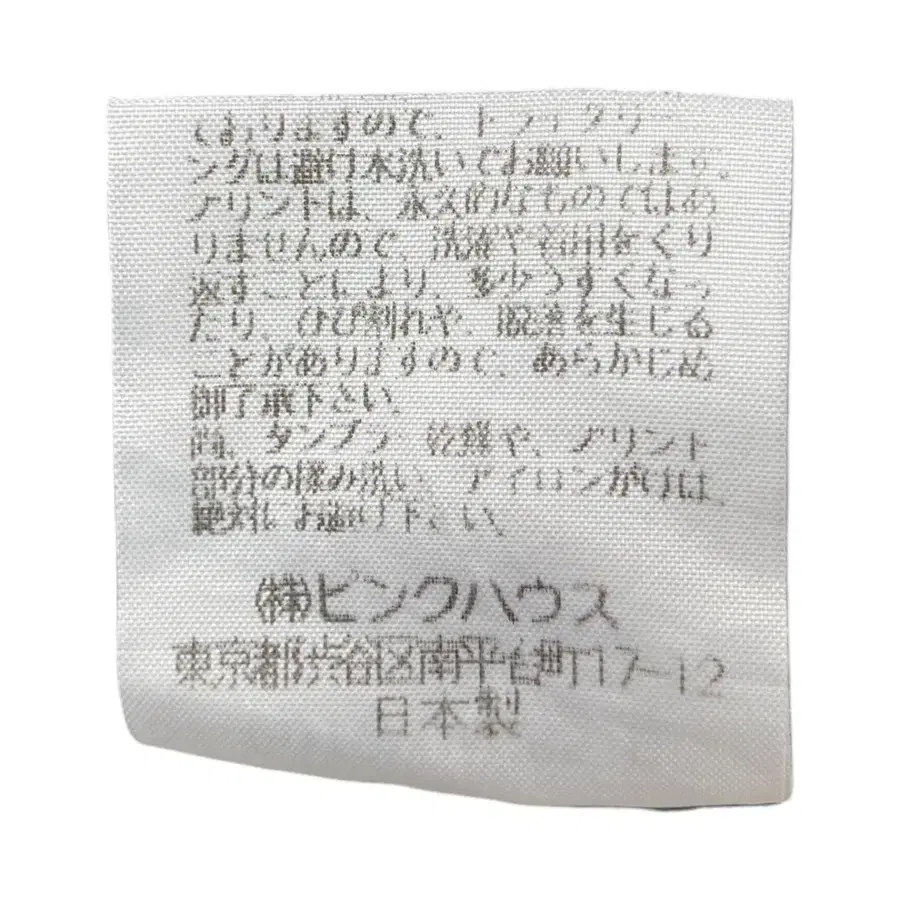 ておりますので、ドライクリー
ングは避け水洗いでお願いします。
プリントは、永久的なものではあ
りませんので、洗濯や着用をくり
返すことにより、多少うすくなっ
たり、ひび割れや、脱落を生じる
ことがありますので、あらかじめ
御了承下さい。
尚、タンブラー乾燥や、プリント
部分の揉み洗い、アイロンがけは、
絶対にお避け下さい。
㈱ピンクハウス
東京都渋谷区南平台町17-12
日本製